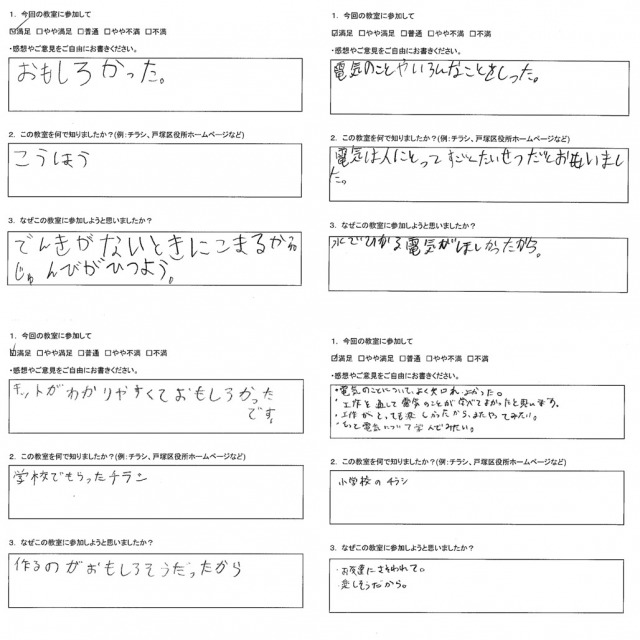 1. 今回の教室に参加して
☑満足 □やや満足 □普通 □やや不満 □不満
・感想やご意見をご自由にお書きください。
おもしろかった。
2. この教室を何で知りましたか?(例:チラシ、戸塚区役所ホームページなど)
こうほう
3. なぜこの教室に参加しようと思いましたか?
でんきがないときにこまるから
じゅんびがひつよう。
1. 今回の教室に参加して
☑満足 □やや満足 □普通 □やや不満 □不満
・感想やご意見をご自由にお書きください。
電気のことやいろんなことをしった。
2. この教室を何で知りましたか?(例:チラシ、戸塚区役所ホームページなど)
電気は人にとってすごくたいせつだとおもいまし
た。
3. なぜこの教室に参加しようと思いましたか?
水でひかる電気がほしかったから。
1. 今回の教室に参加して
☑満足 □やや満足 □普通 □やや不満 □不満
・感想やご意見をご自由にお書きください。
キットがわかりやすくておもしろかった
です。
2. この教室を何で知りましたか?(例:チラシ、戸塚区役所ホームページなど)
学校でもらったチラシ
3. なぜこの教室に参加しようと思いましたか?
作るのがおもしろそうだったから
1. 今回の教室に参加して
☑満足 □やや満足 □普通 □やや不満 □不満
・感想やご意見をご自由にお書きください。
・電気のことについて、よく知れ、よかった。
・工作を通して電気のことが学べてよかったと思います。
・工作がとっても楽しかったから、またやってみたい。
・もっと電気について学んでみたい。
2. この教室を何で知りましたか?(例:チラシ、戸塚区役所ホームページなど)
小学校のチラシ
3. なぜこの教室に参加しようと思いましたか?
・お友達にさそわれて。
・楽しそうだから。